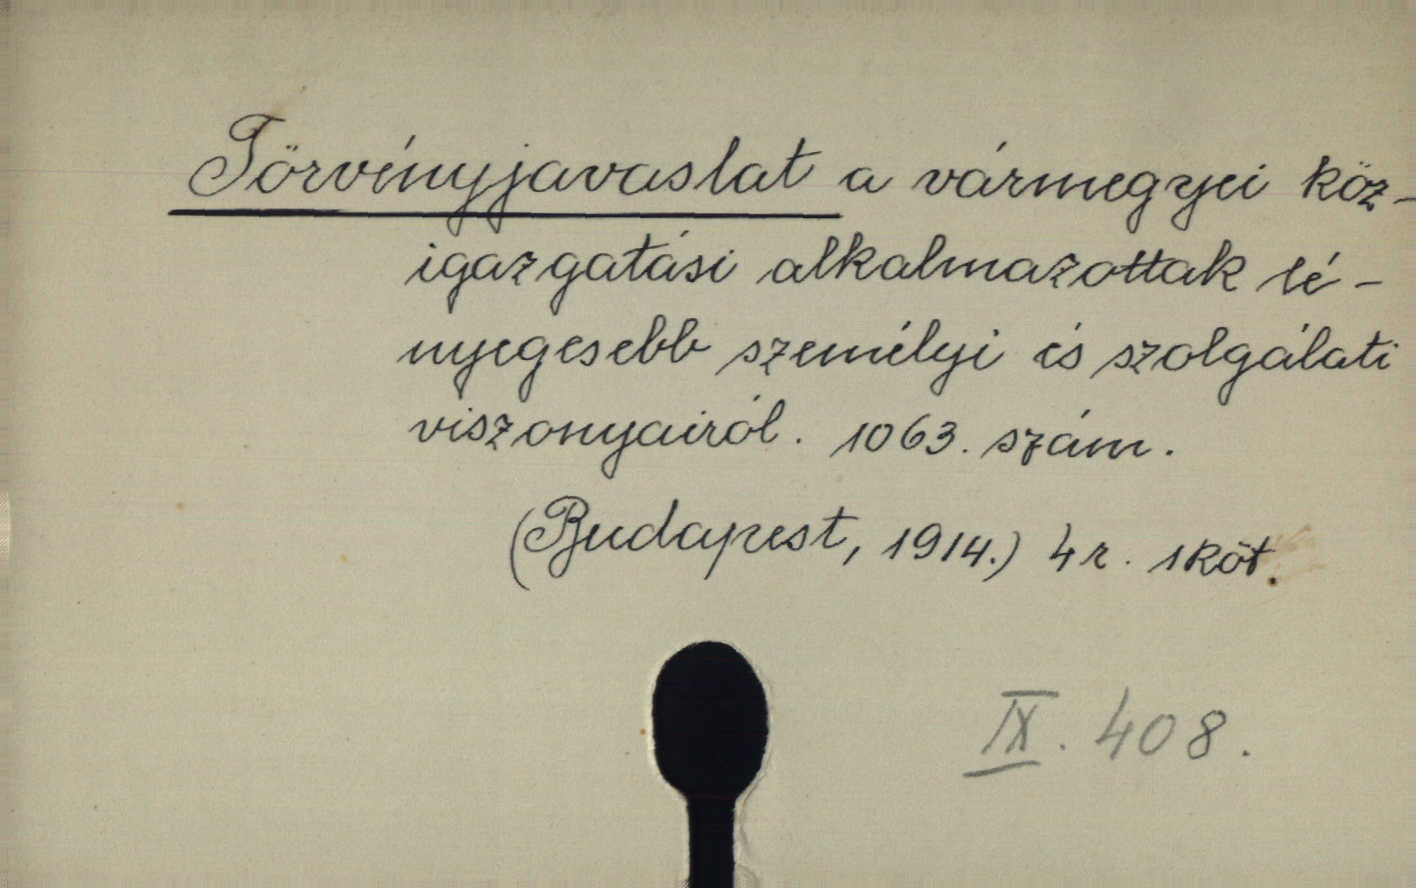 Törvényjavaslat a vármegyei köz-
igazgatási alkalmazottak lé-
nyegesebb személyi és szolgálati
viszonyairól. 1063. szám.
(Budapest, 1914.) 4r. 1 köt.
IX. 408.